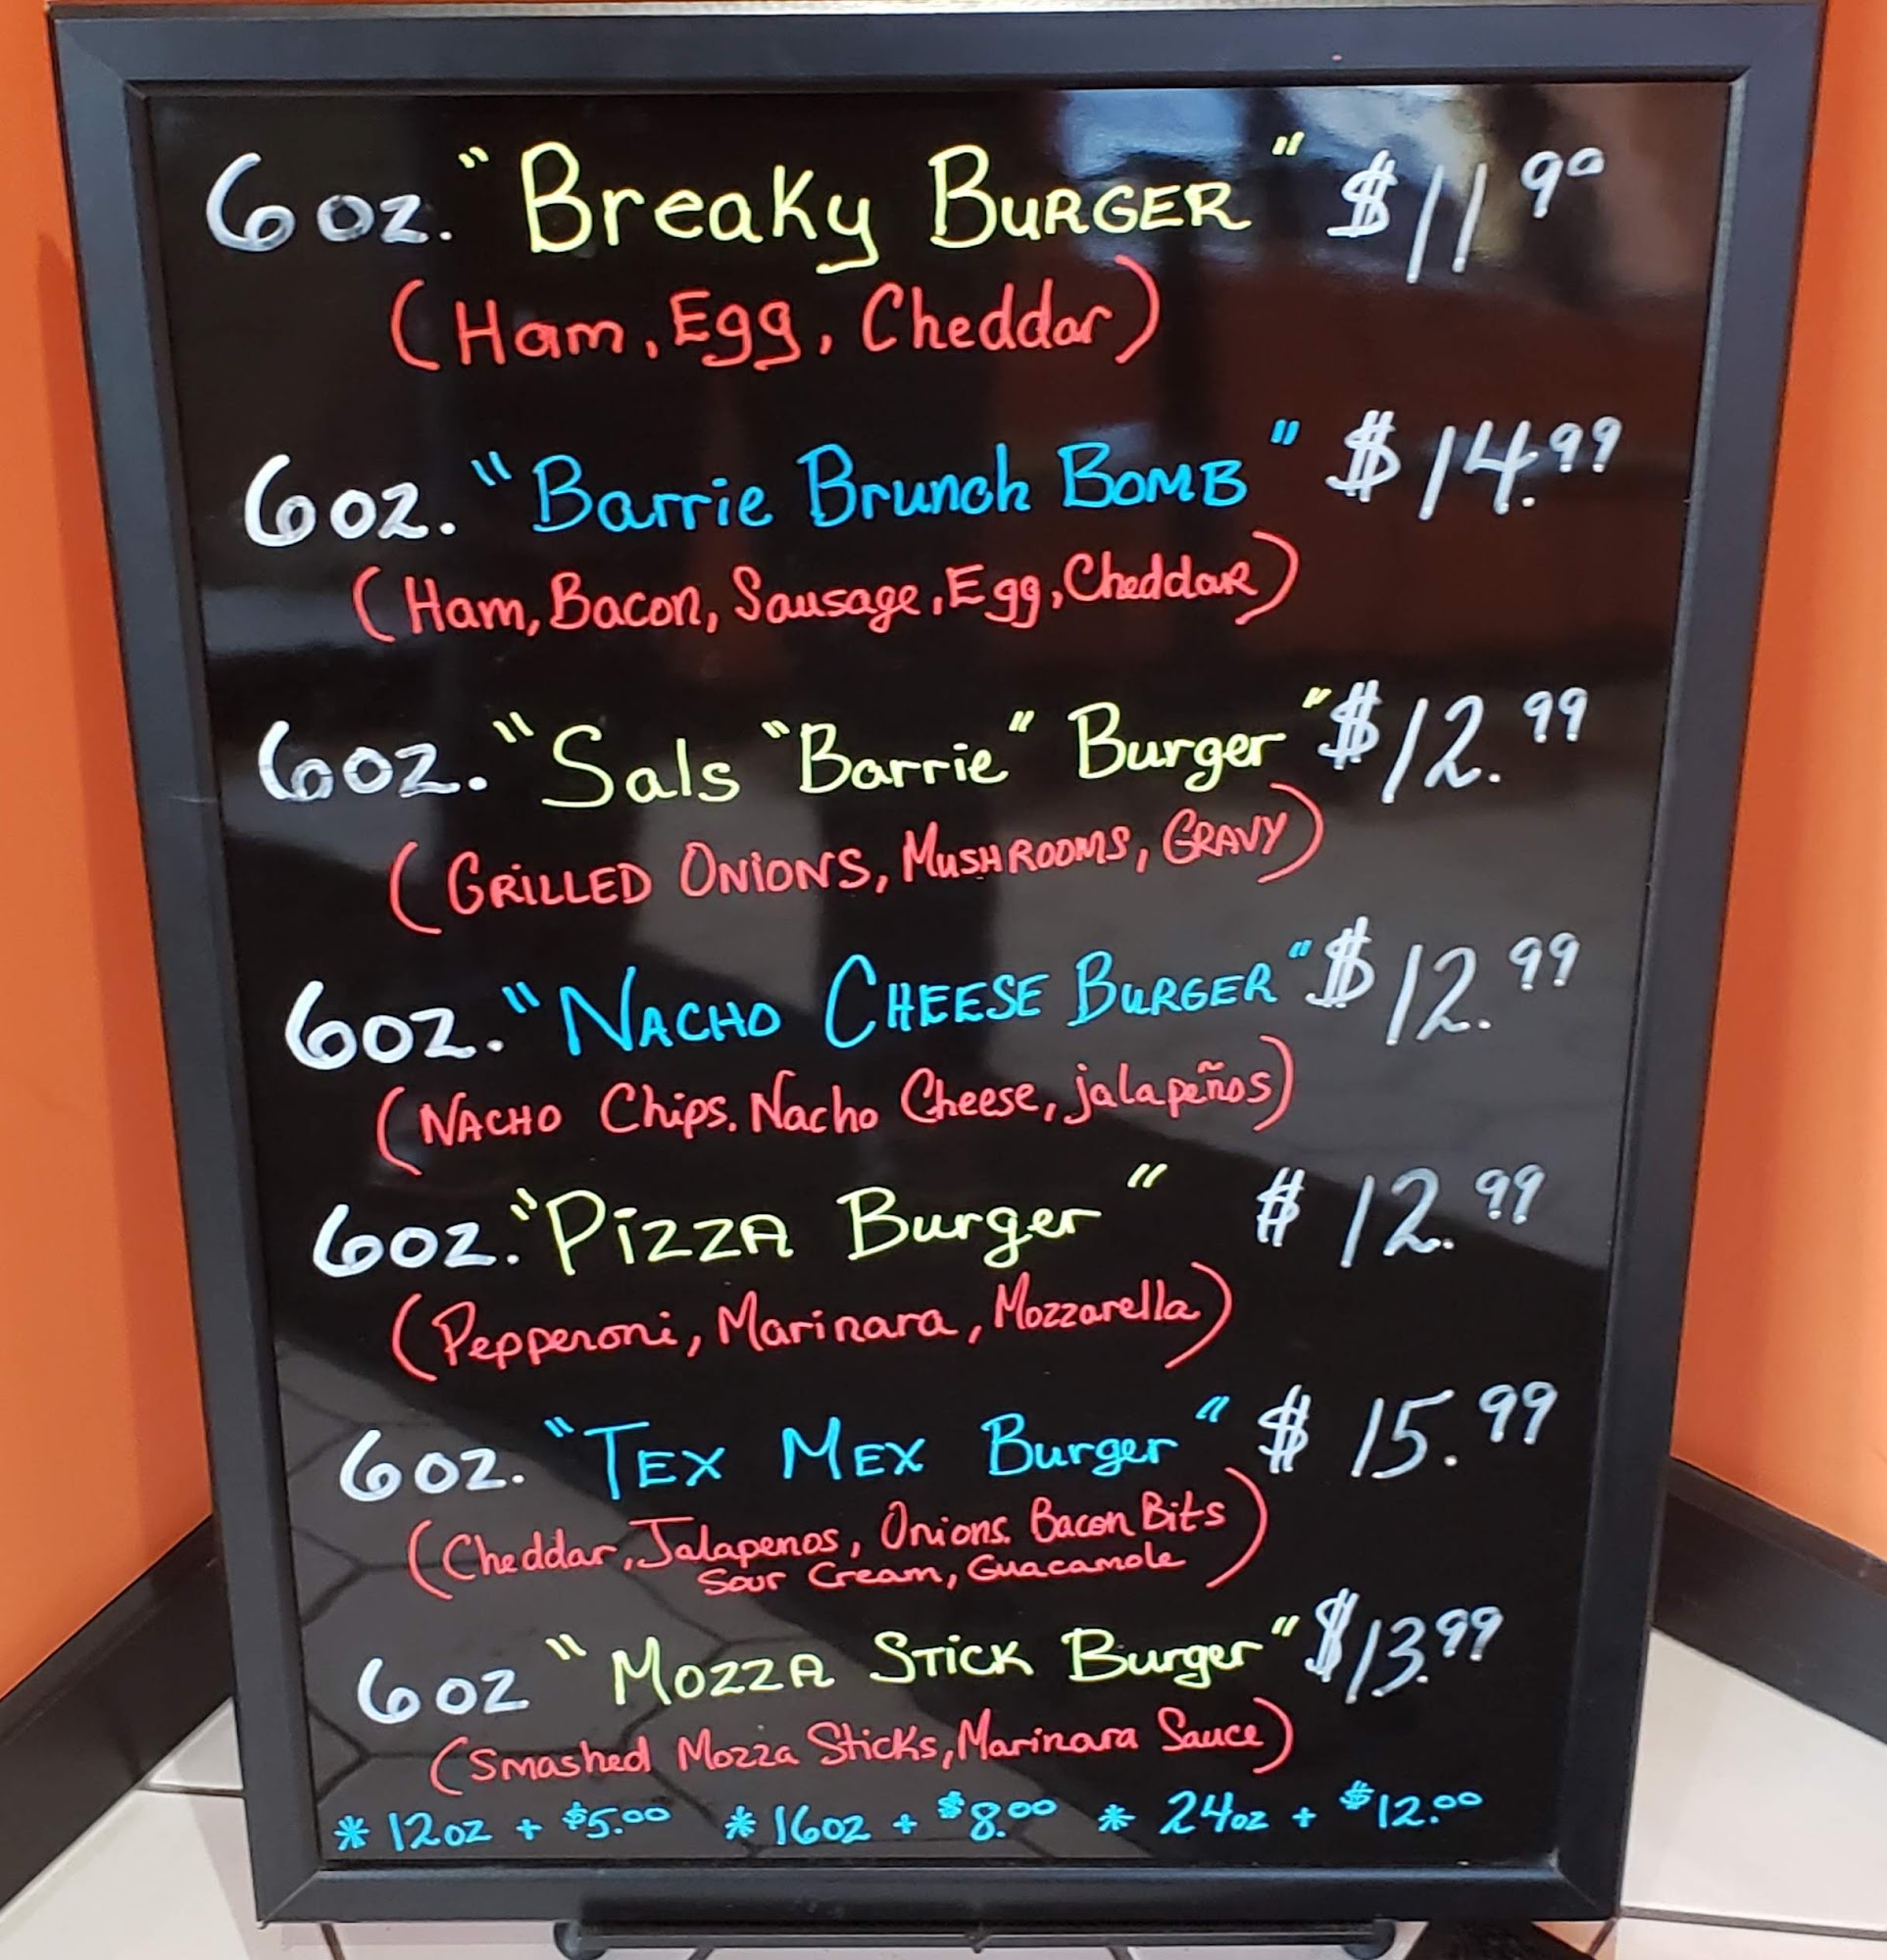 6oz. "Breaky BURGER" $11 99
(Ham, Egg, Cheddar)
6oz. "Barrie Brunch BOMB" $14.99
(Ham, Bacon, Sausage, Egg, Cheddar)
6oz. "Sals "Barrie" Burger" $12.99
(GRILLED ONIONS, MUSHROOMS, GRAVY)
6oz. "NACHO CHEESE BURGER" $12.99
(NACHO Chips. Nacho Cheese, jalapeños)
6oz. "PIZZA Burger" $12.99
(Pepperoni, Marinara, Mozzarella)
6oz. "TEX MEX Burger" $15.99
(Cheddar, Jalapenos, Onions. Bacon Bits
Sour Cream, Guacamole)
6oz "MOZZA STICK Burger" $13.99
(Smashed Mozza Sticks, Marinara Sauce)
* 12oz + $5.00 * 16oz + $8.00 * 24oz + $12.00